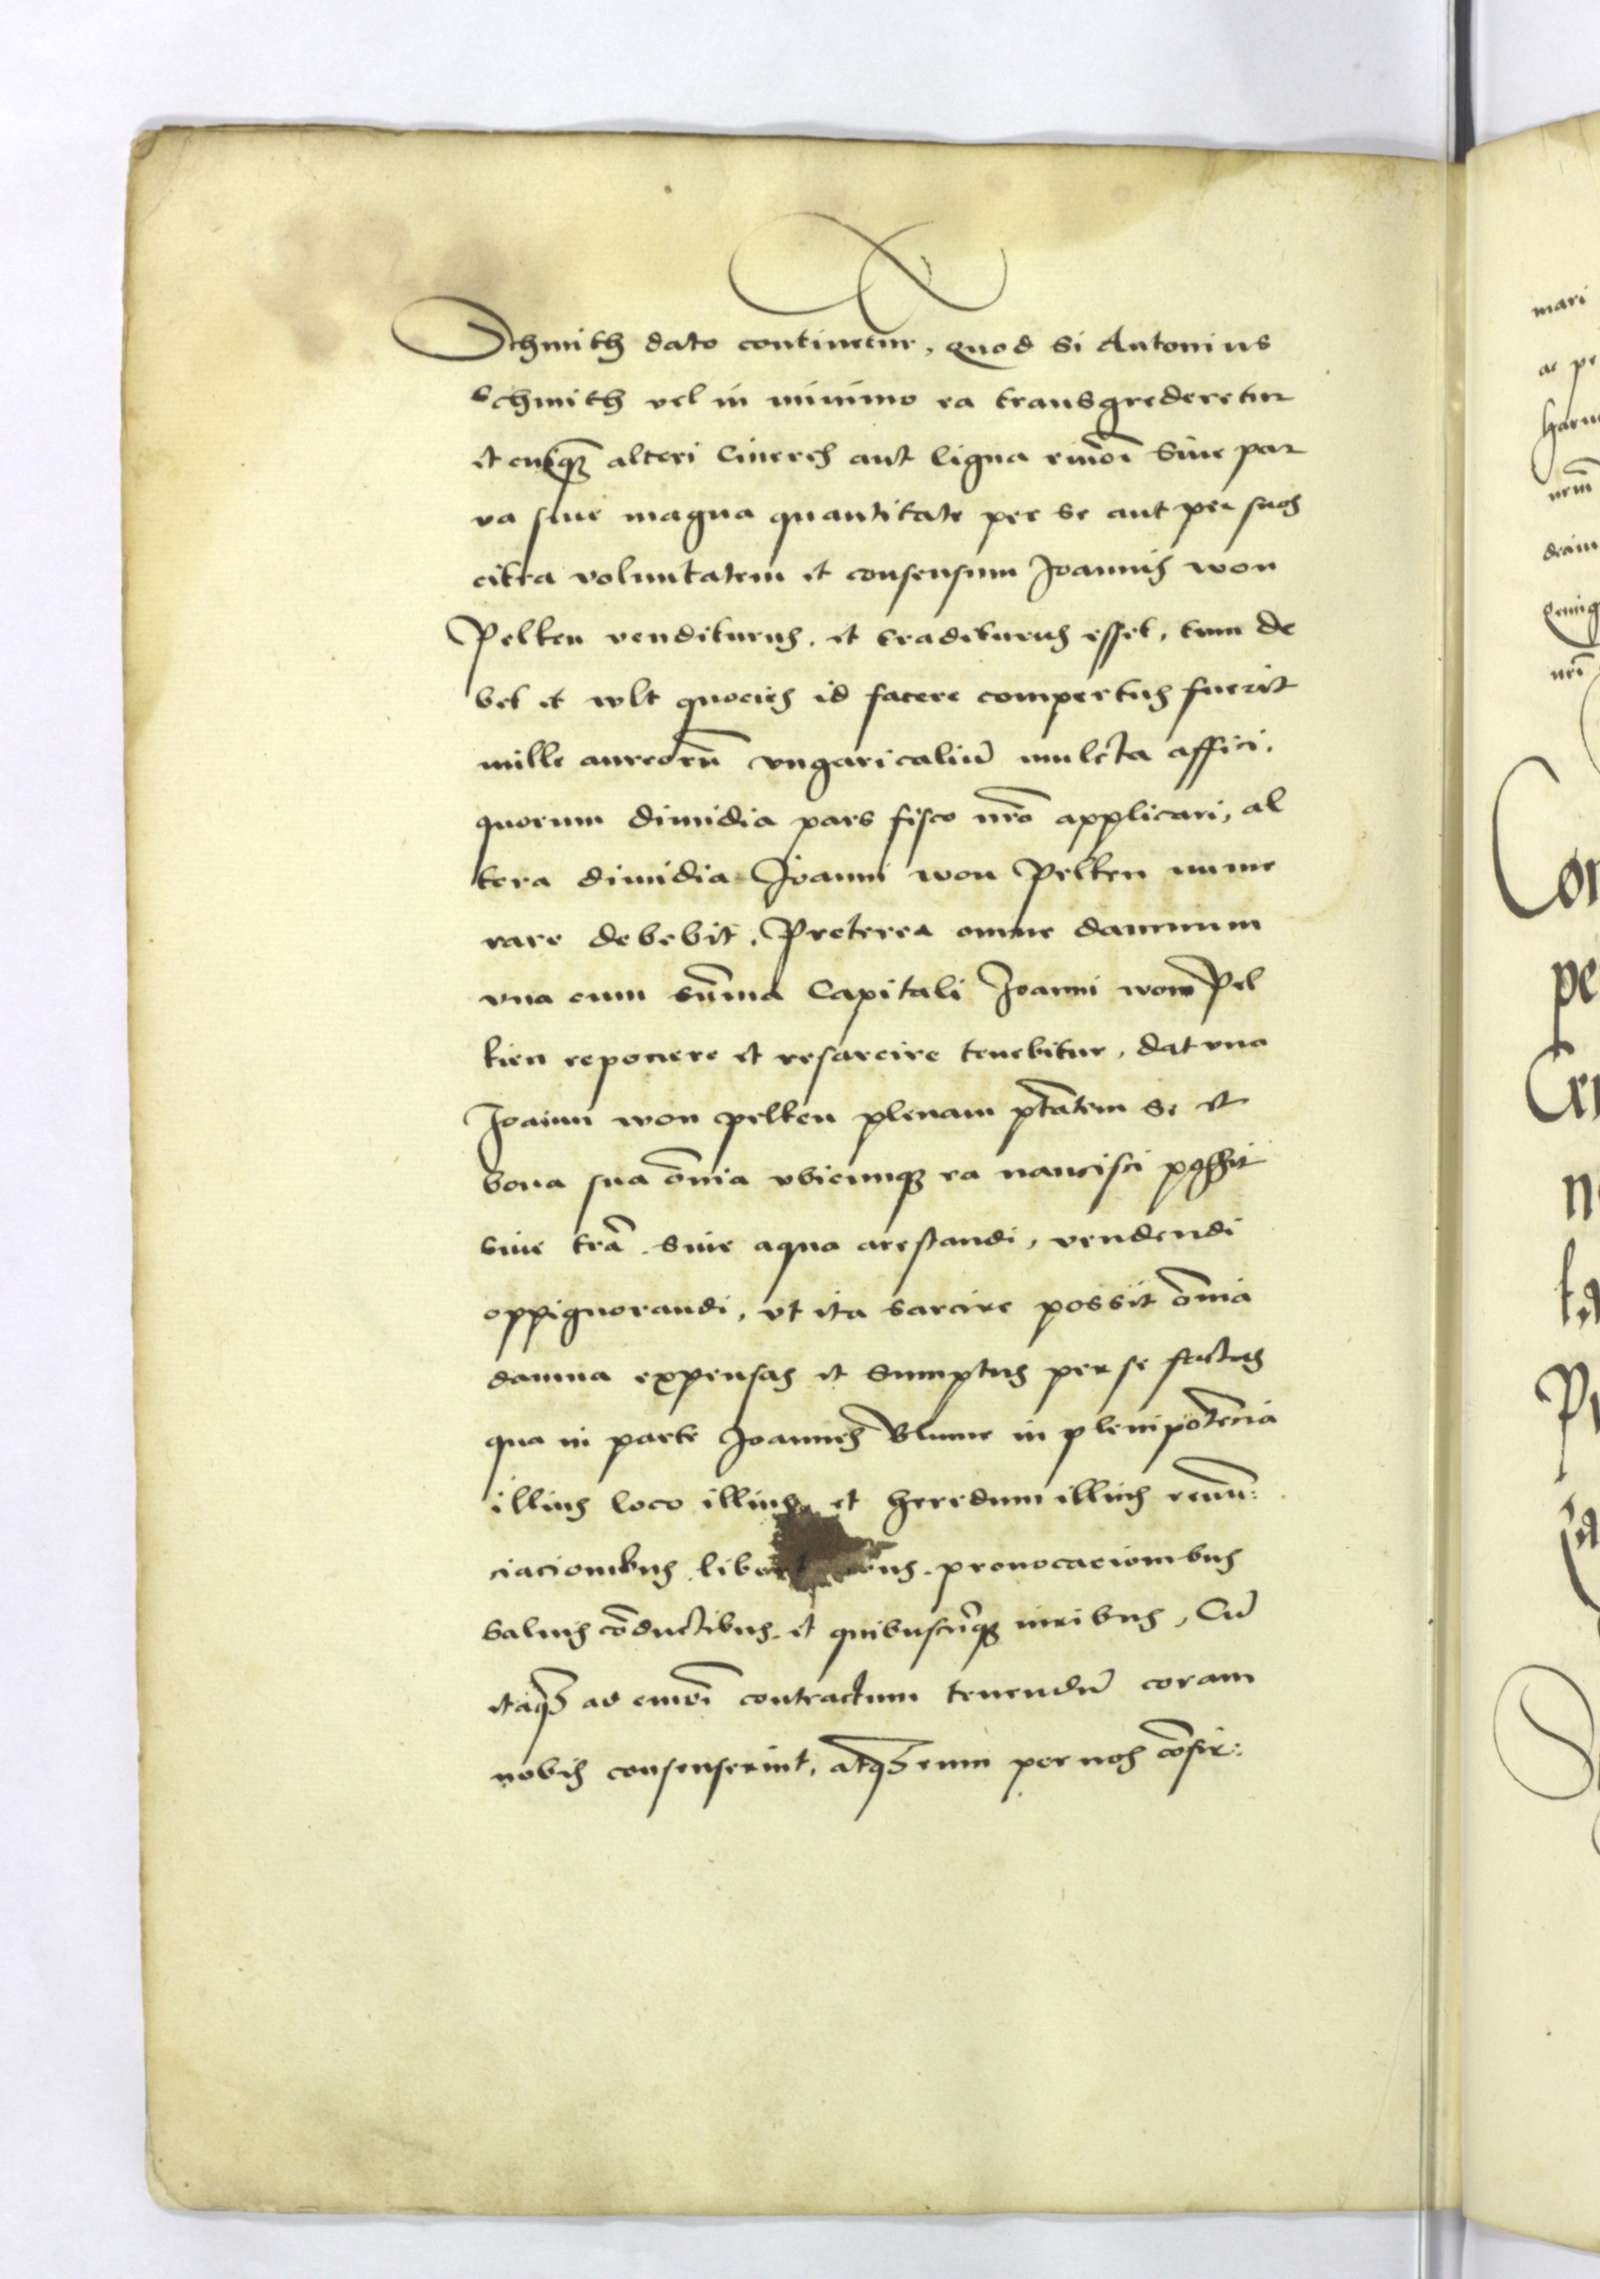 Schmith dato continetur, quod si Antonius
Schmith vel in minimo ea transgrederetur
et cuiq̃ alteri Cineres aut ligna eiuſmõi Siue par
ua ſiue magna quantitate per se aut per ſuos
citra voluntatem et conſenſum Joannis won
Pelken venditurus, et traditurus eſſet, tum de
bet et wlt quocies id facere compertus fuerit
mille aureorũ vngaricaliũ mulcta affici.
quorum dimidia pars fiſco nr̃o applicari, al
tera dimidia Joanni won Pelken nume
rare debebit, Preterea omne damnum
vna cum sũma Capitali Joanni won Pel
ken reponere et resarcire tenebitur, dat vna
Joanni won pelken plenam ptãtem se et
bona ſua om̃ia vbicumq; ea nanciſci poſſit
siue tr̃a siue aqua areſtandi, vendendi
oppignorandi, vt ita sarcire possit om̃ia
damna expenſas et Sumptus per ſe factos
qua in parte Joannes Blume in plenipotẽcia
illius loco illius et heredum illius renũ:
ciacionibus prouocacionibus
Saluis cõductibus et quibuſcũq; iuribus, Cũ
itaq; ad contractum tenendũ coram
nobis conſenſerint, atq; eum per nos cõfir:
mari
ac pe
Con
pe